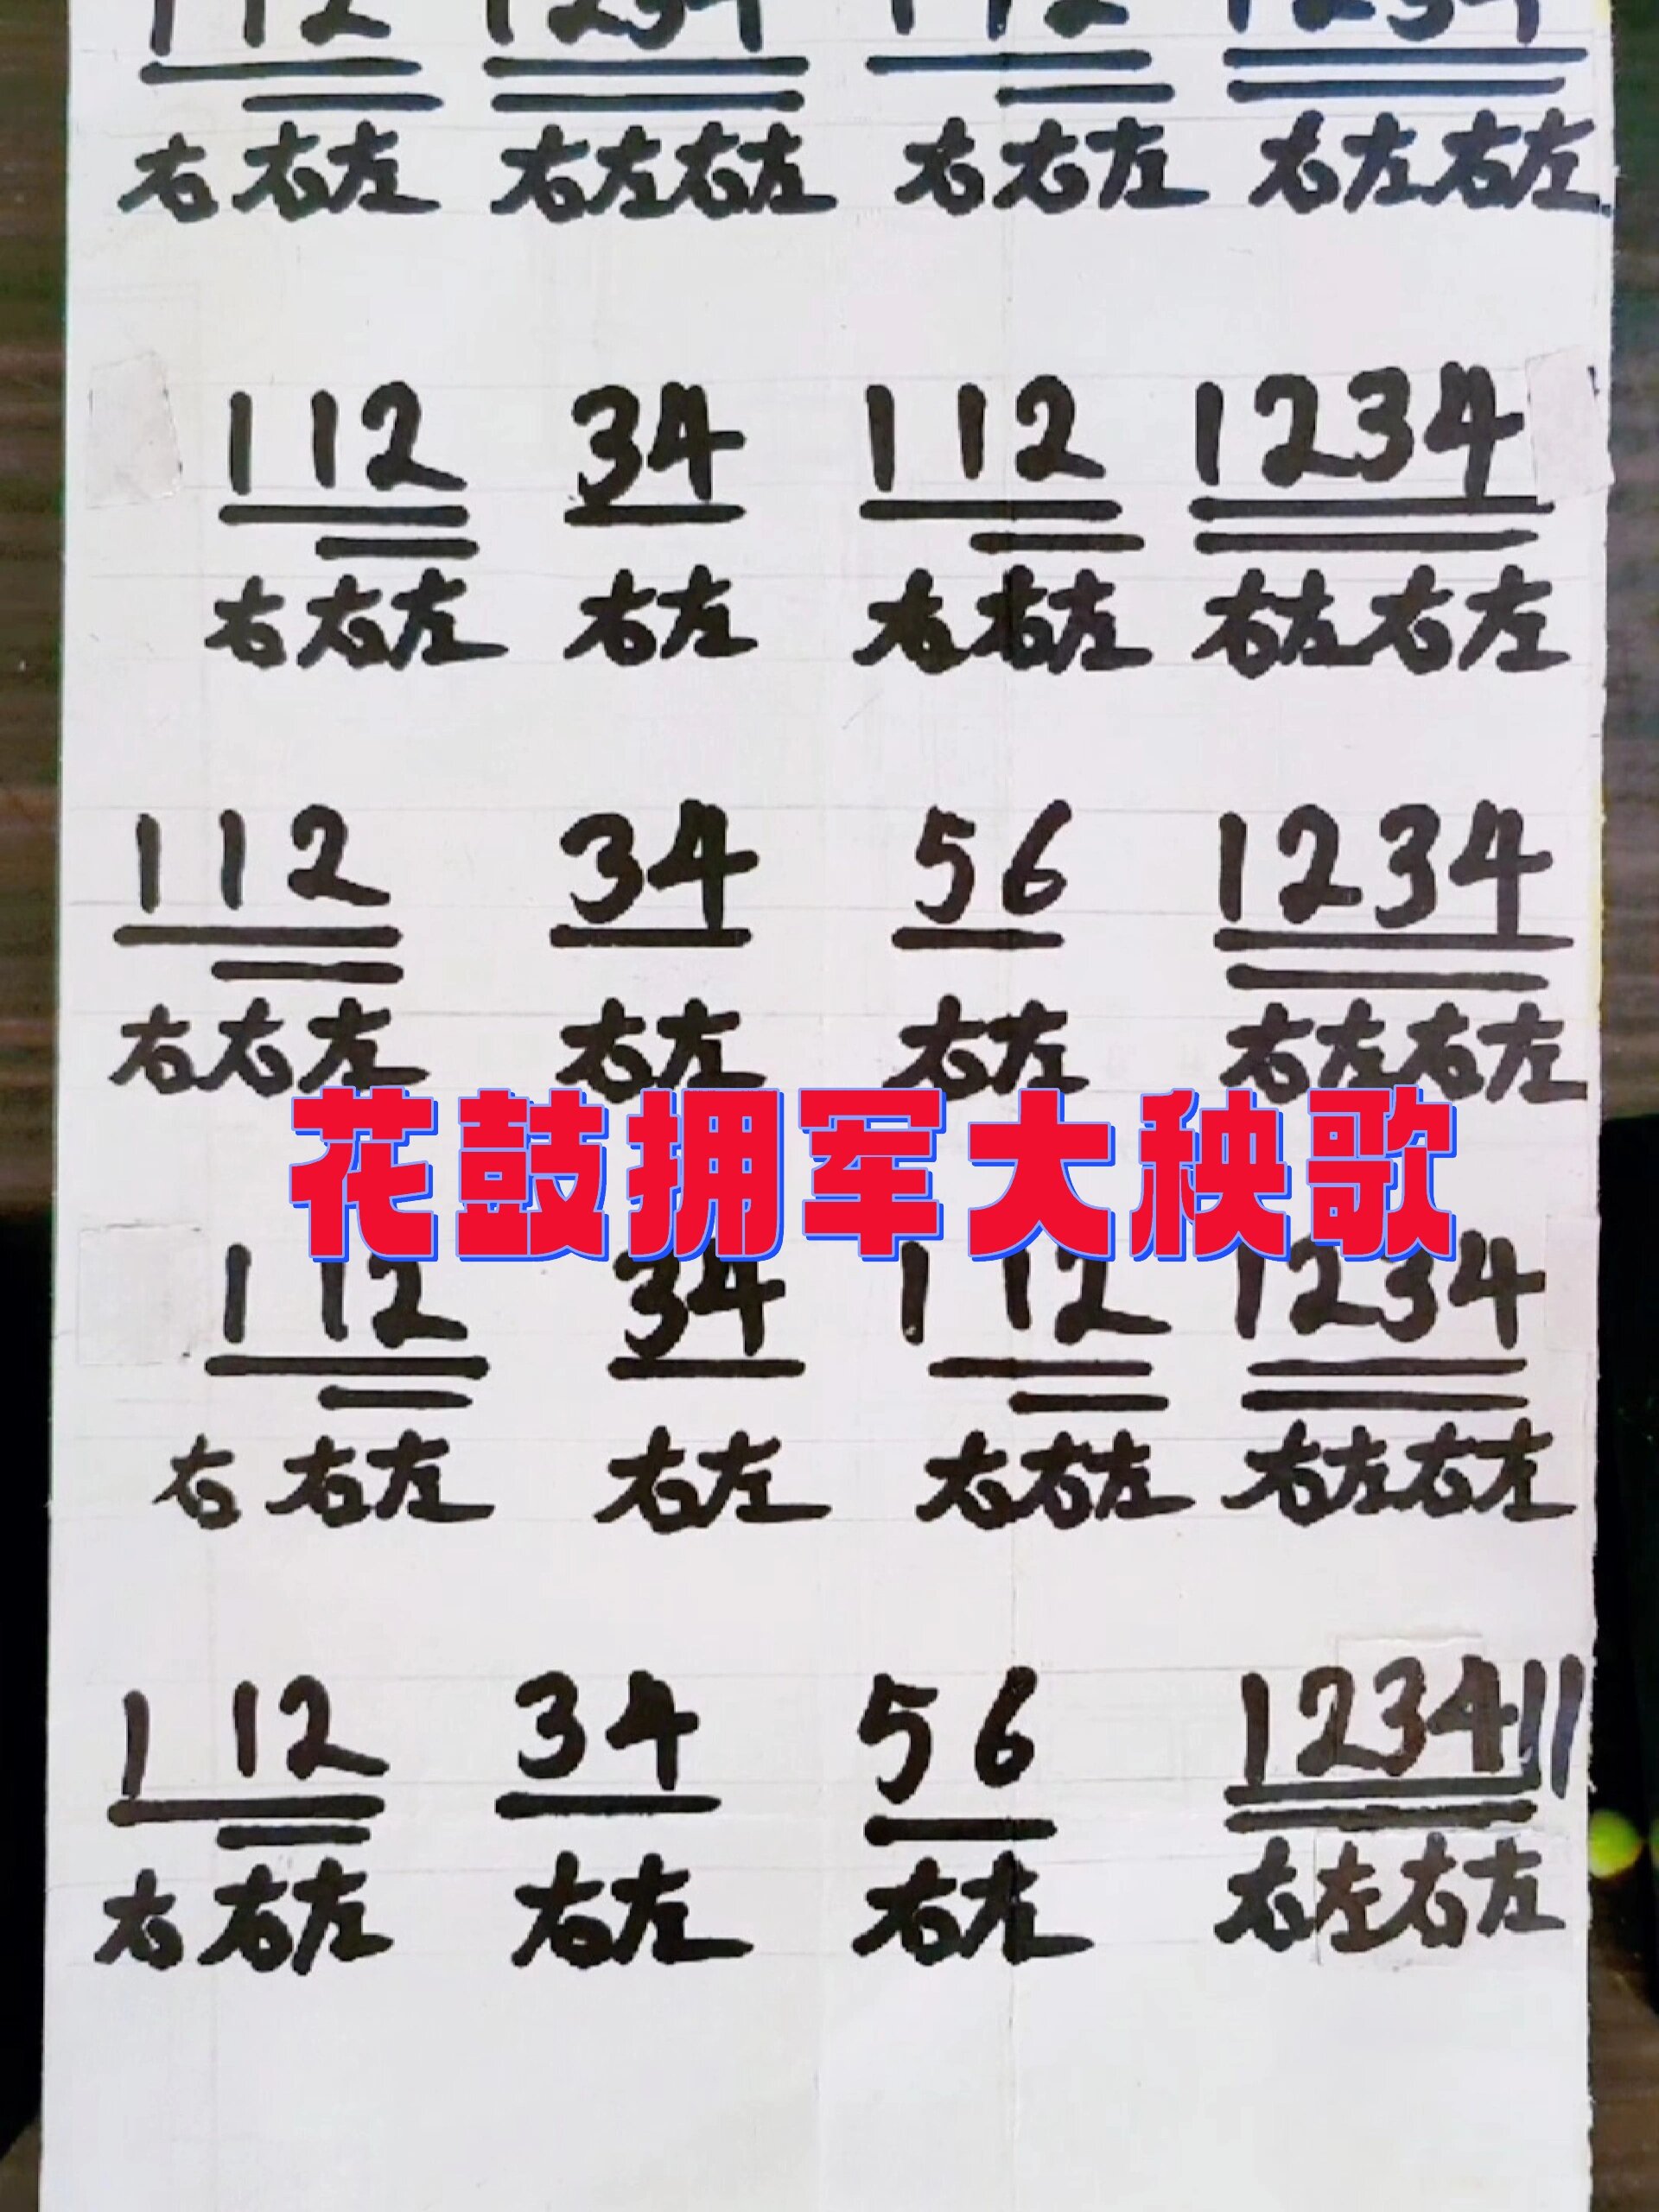 112 1234 112 1234
右右左 右左右左 右右左 右左右左
112 34 112 1234
右右左 右左 右右左 右左右左
112 34 56 1234
右右左 右左 右左 右左右左
花鼓拥军大秧歌
112 34 112 1234
右右左 右左 右右左 右左右左
112 34 56 1234||
右右左 右左 右左 右左右左